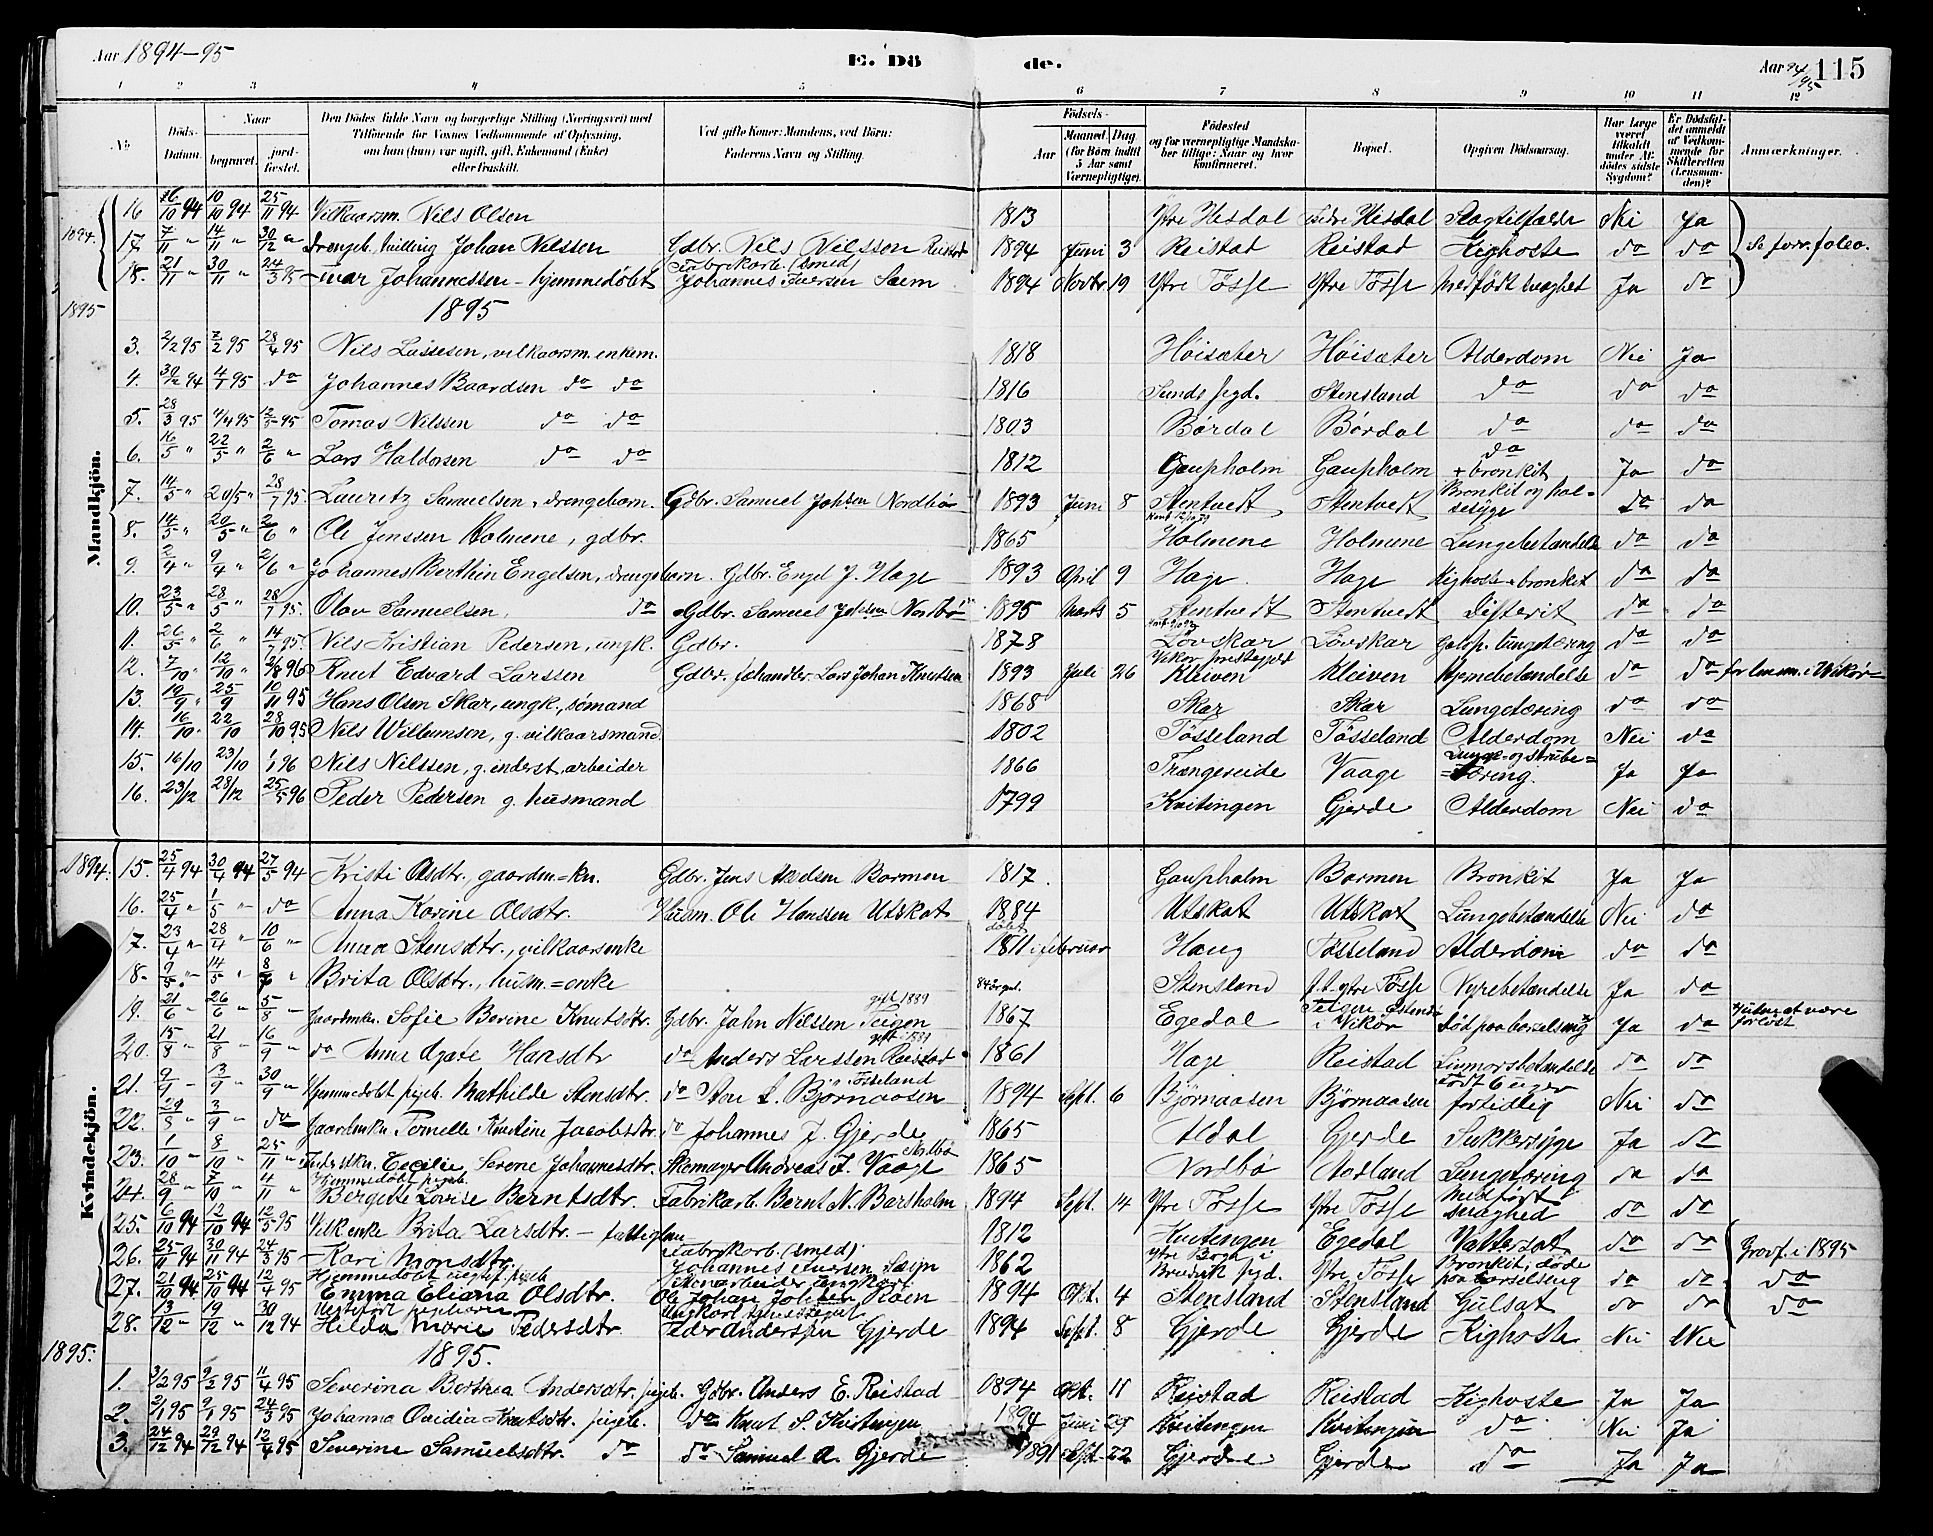 Aar 1894-95 E. Dö de. Aar 94/95 115
1 2 3 4 5 6 7 8 9 10 11 12
No. Döds-Datum. Naar begravet. jord-fæstet. Den Dödes fulde Navn og borgerlige Stilling (Næringsvei) med Tilföiende for Voxnes Vedkommende af Oplysning, om han (hun) var ugift, gift, Enkemand (Enke) eller fraskilt. Ved gifte Koner: Mandens, ved Börn: Faderens Navn og Stilling. Födsels- Aar Maaned Dag (for Börn indtil 5 Aar samt Værnepligtige). Födested og for værnepligtige Mandskaber tillige: Naar og hvor konfirmeret. Bopæl. Opgiven Dödsaarsag. Har Læge været tilkaldt under Afdödes sidste Sygdom? Er Dödsfaldet anmeldt af Vedkommende for Skifteretten (Lensmanden)? Anmærkninger.
Mandkjön.
1894. 16 10/10 94 25/11 94 Vilkaarsm. Nils Olsen 1813 Ytre Hisdal Indre Hisdal Slagtilfælde Nei Ja
17. 7/11 " 14/11 " 30/12 " Drengeb. tvilling Johan Nilssen Gdbr. Nils Nilsson Reistad 1894 Juni 3 Reistad Reistad Kighoste do do Se forr. folio.
18. 21/11 " 30/11 " 24/3 95 Johannessen - hjemmedøbt Fabrikarb. (smed) Johannes Iversen Sæm 1894 Novbr. 19 Ytre Tøsse Ytre Tøsse Medfødt svaghed Ja do
1895 1895
3. 2/2 95 7/2 95 28/4 95 Nils Lassesen, vilkaarsm. enkem. 1818 Høisæter Høisæter Alderdom Nei Ja
4. 30/12 94 4/1 95 do Johannes Baardsen do do 1816 Sunds pgd. Stensland do do do
5. 28/3 95 4/4 95 12/5 95 Tomas Nilssen do do 1803 Børdal Børdal do do do
6. 16/5 " 22/5 " 2/6 " Lars Haldorsen do do 1812 Gaupholm Gaupholm do + bronkit Ja do
7. 14/5 " 20/5 " 28/7 95. Lauritz Samuelsen, drengebarn. Gdbr. Samuel Johsen Nordbø 1893 Juni 8 Stentvedt Stentvedt Bronkit og halsesyge do do
8. 14/5 " 20/5 " 2/6 " Ole Jenssen Holmene, gdbr. 1865 Holmene Holmene Lungebetændelse do do
9. 2/4 " 9/4 " 2/6 " Johannes Berthin Engelsen, drengebarn. Gdbr. Engel J. Hage 1893 April 9 Hage. Hage Kighoste + bronkit do do
10. 23/5 " 28/5 " 28/7 95. Olav Samuelsen, do Gdbr. Samuel Johsen Nordbø 1895 Marts 5 Stentvedt Stentvedt Difterit do do
11. 26/5 " 2/6 " 14/7 95. Nils Kristian Pedersen, ungk. Gdbr. 1878 Løvskar Løvskar Galop. lungetæring do do
12. 7/10 " 12/10 " 2/8 96 Knut Edvard Larssen Gdbr. fehandler. Lars Johan Knutsen 1893 Juli 26 Vikør prestegjeld Kleiven Kleiven Hjernebetændelse do do for lensm. i Vikør
13. 19/9 " 25/9 10/11 95 Hans Olsen Skar, ungk., sømand 1868 Skar Skar Lungetæring do do
14. 16/10 " 22/10 28/10 95 Nils Willumsen, g. vilkaarsmand. 1802 Tøsseland Tøsseland Alderdom Nei do
15. 16/10 23/10 1/1 96 Nils Nilssen, g. inderst, arbeider 1866 Trængereide Vaage Lunge- og strube=tæring. Ja Ja
16. 23/12 28/12 25/5 96 Peder Pedersen g. husmand 1799 Kvitingen Gjerde Alderdom Nei do
Kvindekjön.
1894. 15. 25/4 94 30/4 94 27/5 94 Kristi Olsdtr. gaardm=kn. Gdbr. Jens Axelsen Barmen 1817. Gaupholm Barmen Bronkit Ja Ja
16. 25/4 " 1/5 " do Anna Karine Olsdtr. Husm. Ole Hanssen Utskot 1884 Utskot Utskot Lungebetændelse Nei do
17. 23/4 " 28/4 " 10/6 " Anna Stensdtr., vilkaarsenke døbt 1811 i februar Haug Tøsseland Alderdom do do
18. 9/5 " 14/5 " " Brita Olsdtr., husm.=enke 84 år gml. Stensland f.t. ytre Tøsse Nyrebetændelse Ja do
19. 21/6 " 26/6 " 5/8 " Gaardmkn. Sofie Berine Knutsdtr. Gdbr. John Nilssen Teigen gift 1889 1867 Egedal Teigen Østensø i Vikør Død paa barselseng Ja do uden at være forløst
20. 15/8 " 21/8 " 16/9 " do Anna Agate Hansdtr do Anders Larssen Reistad 1861 Hage Reistad Livmorsbetændelse do do
21. 9/9 " 13/9 " 30/9 " Hjemmedøbt pigeb. Mathilde Stensdtr. do Sten L. Bjørnaasen Tøsseland 1894 Sept. 6 Bjørnaasen Bjørnaasen født 6 uger fortidlig Nei do
22. 29/8 " 3/9 " do Gaardmkn. Pernelle Kristine Jacobsdtr. do Johannes J. Gjerde 1865 Aldal Gjerde Sukkersyge Ja do
23. 1/10 " 8/10 " 25/11 " Inderstkn. Cecilie Serene Johannesdtr. Skomager Andreas I. Vaage 1865 Nordbø Aadland Lungetæring do do
24. 28/9 " 7/10 " 4/11 " Hjemmedøbt pigeb. Bergitte Lovise Berntsdtr. Fabrikarb. Bernt N. Barsholm 1894 Sept. 14 Ytre Tøsse Ytre Tøsse Medfødt svaghed do do
25. 6/10 94 12/10 94 12/5 95 Vilk enke Brita Larsdtr. - fattiglem 1812 Kvitengen Egedal Vattersot do do Jordf. i 1895
26. 25/11 94 30/11 94 24/3 95 Kari Monsdtr. Fabrikarb. (smed) Johannes Iversen Sæm 1862 Ytre Bogh i Bruvik pgd. Ytre Tøsse Bronkit, døde paa barselseng do do do
27. 21/10 94 25/10 94 12/4 95 Hjemmedøbt uegte pigeb. Emma Eliana Olsdtr. Stenarbeider Ungkarl Ole Johan Røen 1894 Okt. 4 Stensland Stensland Gulsot do do do
28. 13/12 " 19/12 " 30/12 94 Hilda Marie Pedersdtr. Peder Anderssen Gjerde 1894 Sept. 8 Gjerde Gjerde Kighoste Nei Nei
1895. 1895.
1. 3/2 95 9/2 95 11/4 95 Severina Berthea Andersdtr. pigeb. Gdbr. Anders E. Reistad 1894 Okt. 11 Reistad Reistad Kighoste Ja Ja
2. 2/1 95 9/1 95 24/3 95 Johanna Ovidia Knutsdtr. pigeb. do Knut S. Kvitingen 1894 Juni 29 Kvitingen Kvitingen do Nei Ja
3. 24/12 94 29/12 94 12/4 95 Severine Samuelsdtr. do do Samuel A. Gjerde 1891 Sept. 22 Gjerde Gjerde do Ja Ja